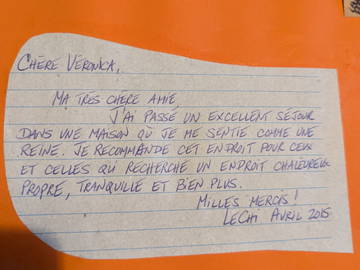 CHÈRE VERONICA,
MA TRÈS CHÈRE AMIE,
J'AI PASSÉ UN EXCELLENT SÉJOUR
DANS UNE MAISON QU JE ME SENTIE COMME UNE
REINE. JE RECOMMANDE CET ENDROIT POUR CEUX
ET CELLES QUI RECHERCHE UN ENDROIT CHALEUREUX
PROPRE, TRANQUILLE ET BIEN PLUS.
MILLES MERCIS!
AVRIL 2015